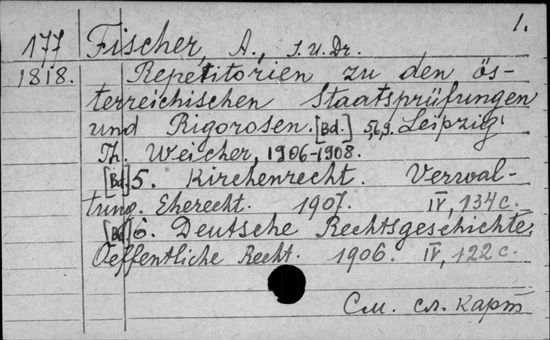 1.
177 Fischer, A., I. U. Dr.
1818. Repetitorien zu den ös-
terreichischen Staatsprüfungen
und Rigorosen. [Bd.] 5,6,9. Leipzig,
Th. Weicher, 1906-1908.
[Bd.] 5. Kirchenrecht. Verwal-
tung. Eherecht. 1907. IV, 134 c.
[Bd.] 6. Deutsche Rechtsgeschichte.
Oeffentliche Recht. 1906. IV, 122 c.
См. сл. карт